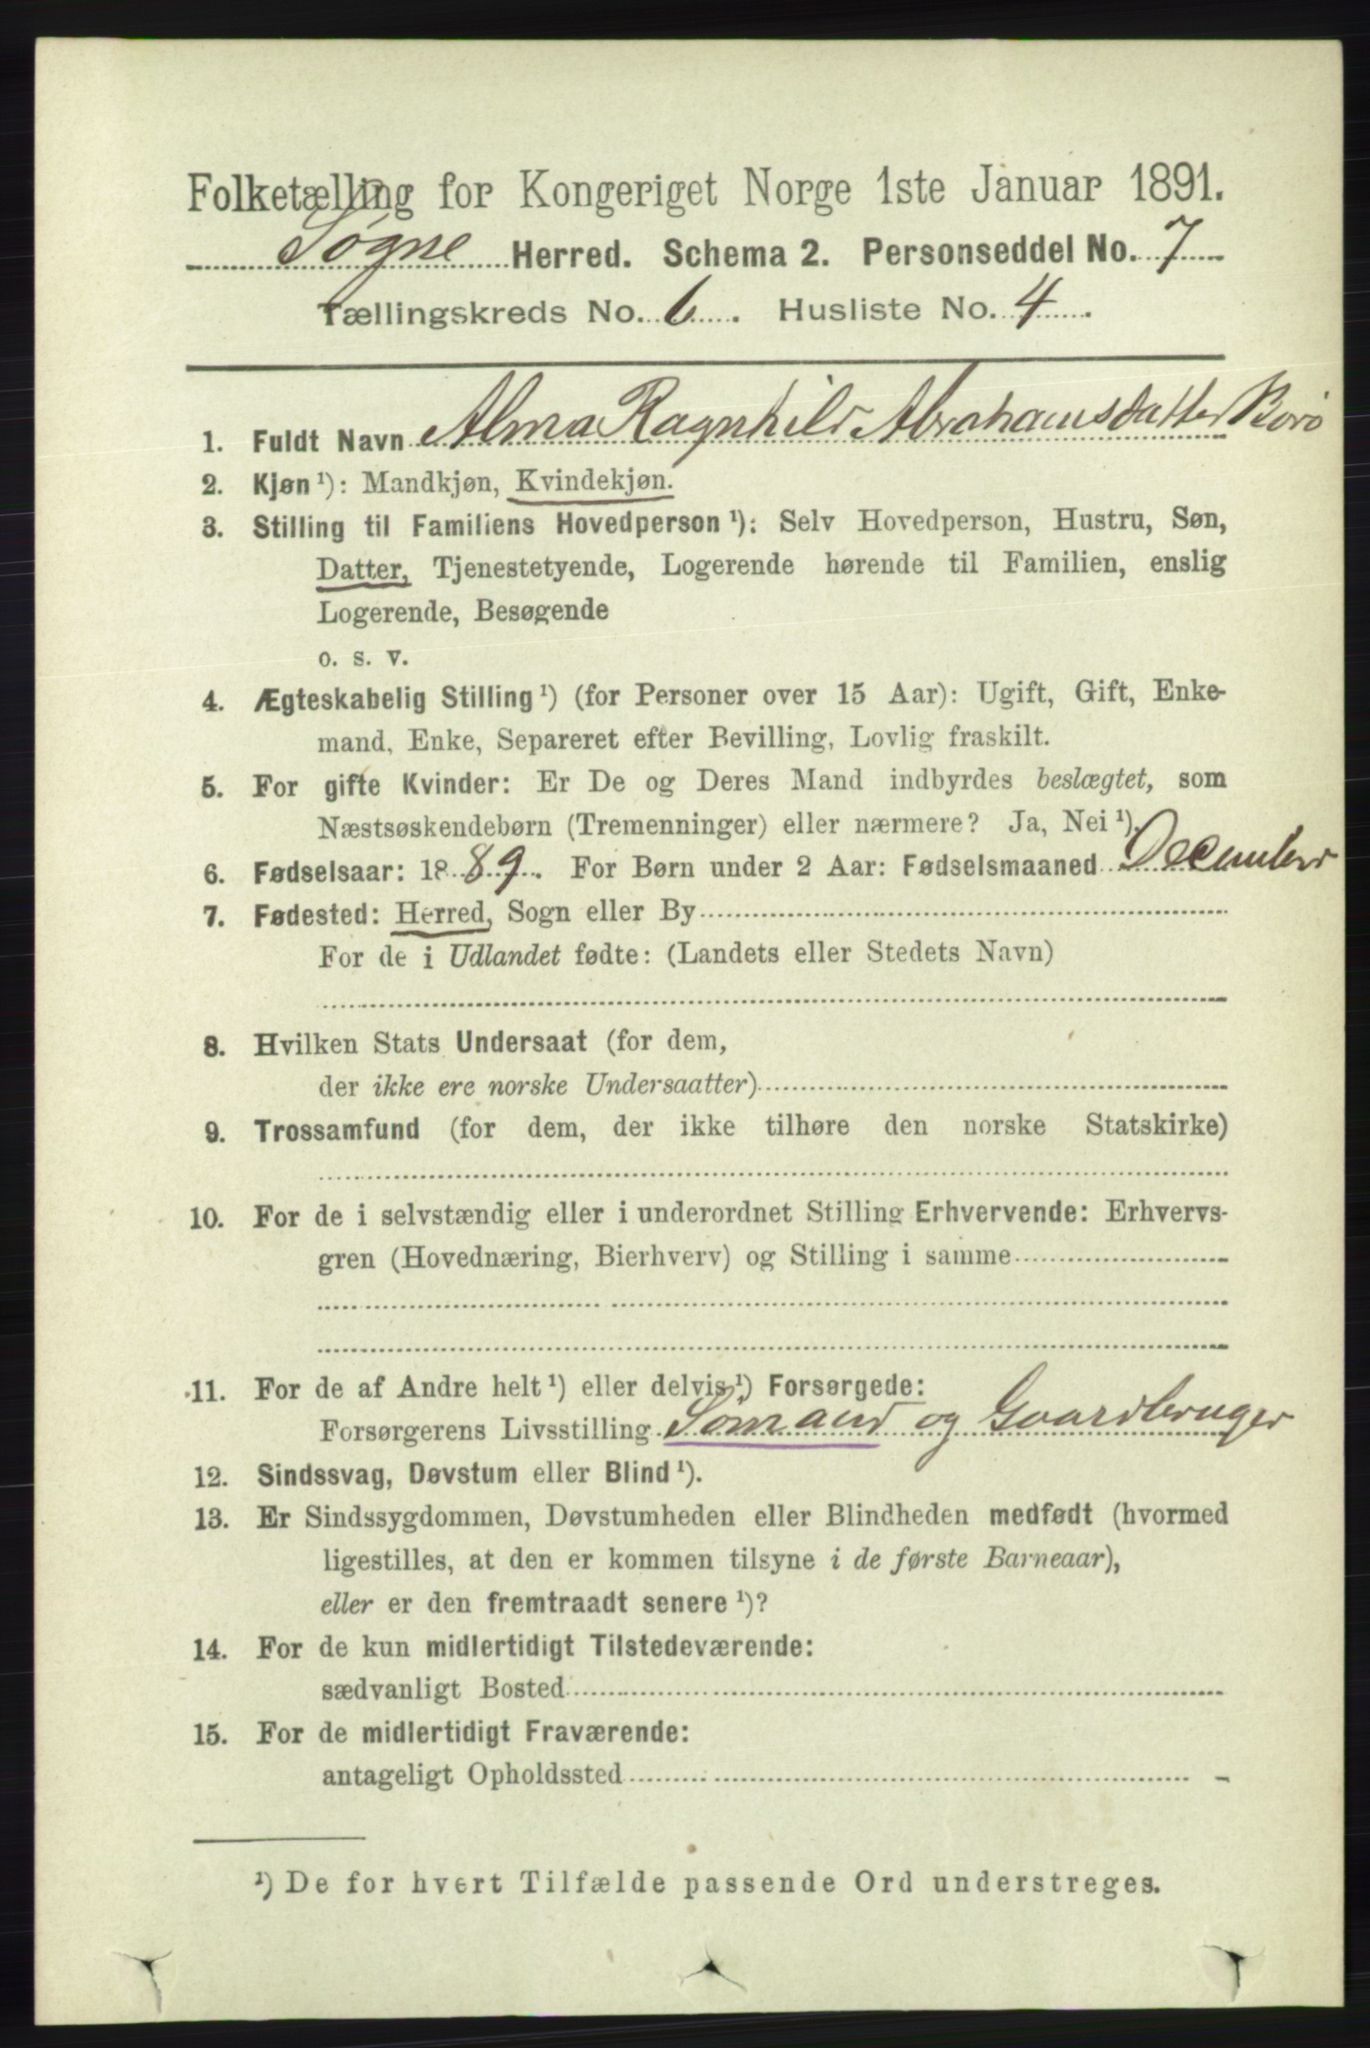 Folketælling for Kongeriget Norge 1ste Januar 1891.
Søgne Herred. Schema 2. Personseddel No. 7
Tællingskreds No. 6. Husliste No. 4.
1. Fuldt Navn Alma Ragnhild Abrahamsdatter Borø
2. Kjøn ¹): Mandkjøn, Kvindekjøn.
3. Stilling til Familiens Hovedperson ¹): Selv Hovedperson, Hustru, Søn,
Datter, Tjenestetyende, Logerende hørende til Familien, enslig
Logerende, Besøgende
o. s. v.
4. Ægteskabelig Stilling ¹) (for Personer over 15 Aar): Ugift, Gift, Enke-
mand, Enke, Separeret efter Bevilling, Lovlig fraskilt.
5. For gifte Kvinder: Er De og Deres Mand indbyrdes beslægtet, som
Næstsøskendebørn (Tremenninger) eller nærmere? Ja, Nei ¹).
6. Fødselsaar: 1889. For Børn under 2 Aar: Fødselsmaaned December
7. Fødested: Herred, Sogn eller By
For de i Udlandet fødte: (Landets eller Stedets Navn)
8. Hvilken Stats Undersaat (for dem,
der ikke ere norske Undersaatter)
9. Trossamfund (for dem, der ikke tilhøre den norske Statskirke)
10. For de i selvstændig eller i underordnet Stilling Erhvervende: Erhvervs-
gren (Hovednæring, Bierhverv) og Stilling i samme
11. For de af Andre helt ¹) eller delvis ¹) Forsørgede:
Forsørgerens Livsstilling Sömand og Gaardbruger
12. Sindssvag, Døvstum eller Blind ¹).
13. Er Sindssygdommen, Døvstumheden eller Blindheden medfødt (hvormed
ligestilles, at den er kommen tilsyne i de første Barneaar),
eller er den fremtraadt senere ¹)?
14. For de kun midlertidigt Tilstedeværende:
sædvanligt Bosted
15. For de midlertidigt Fraværende:
antageligt Opholdssted
¹) De for hvert Tilfælde passende Ord understreges.